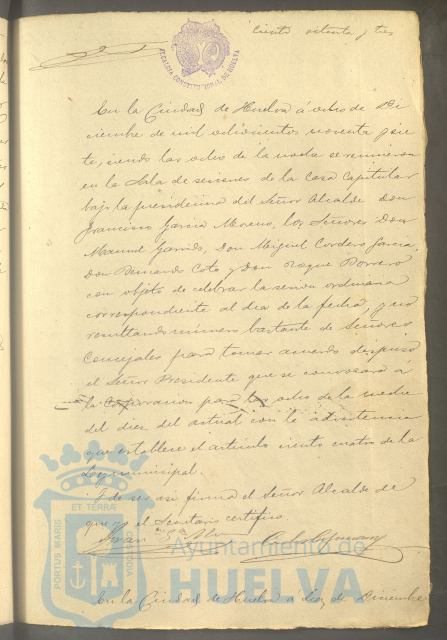 ciento setenta y tres
ALCALDIA CONSTITUCIONAL DE HUELVA
En la Ciudad de Huelva á ocho de Di
ciembre de mil ochocientos noventa y sie
te, siendo las ocho de la noche se reunieron
en la Sala de sesiones de la Casa Capitular
bajo la presidencia del Señor Alcalde Don
Francisco García Moreno, los Señores Don
Manuel Garrido, Don Miguel Cordero García,
Don Fernando Coto y Don Roque Borrero
con objeto de celebrar la sesion ordinaria
correspondiente al dia de la fecha, y no
resultando número bastante de Señores
Concejales para tomar acuerdo dispuso
el Señor Presidente que se convocara á
la Corporacion para las ocho de la noche
del diez del actual con la advertencia
que establece el artículo ciento cuatro de la
Ley municipal.
Y de ser asi firma el Señor Alcalde de
que yo el Secretario certifico.
Ayuntamiento de
HUELVA
PORTUS MARIS ET TERRÆ
En la Ciudad de Huelva a diez de Diciembre